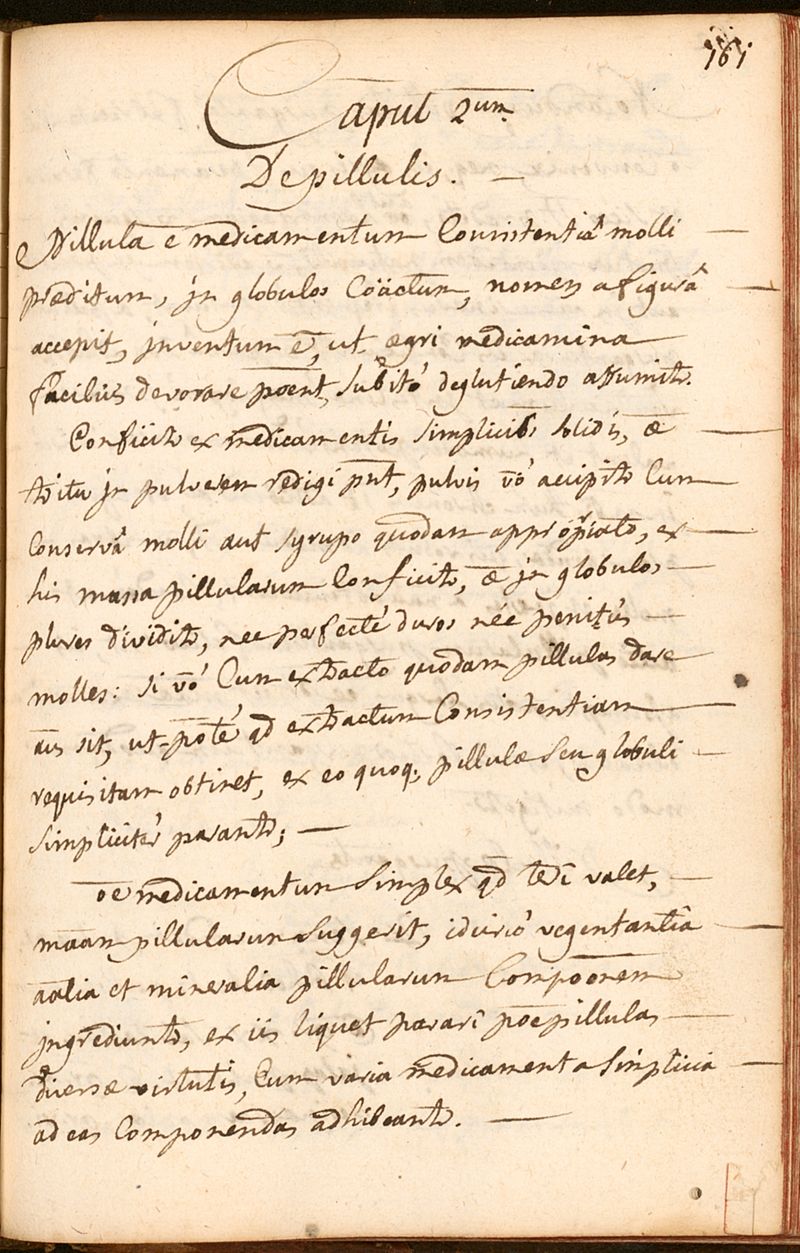 161
Caput 2um
De pillulis. —
Pillula ē medicamentum Consistentiâ molli —
præditum, jn globulos Coäctum, nomen a figurâ —
accepit, jnventum ē, ut ægri medicamina
faciliùs devorare poent, subitò deglutiendo assumitr.
Conficitr ex medicamentis simplicibs solidis, æ —
jn pulverem redigi pnt, pulvis vō accipitr Cum
Conservâ molli aut syrupo quodam appropriato, ex —
his massa pillularum Conficitr, æ jn globulos —
plures dividitr, nec perfectè duros nèc penitùs —
molles: si vō Cum extracto quodam pillulas dare
sit, ut-potè qd extractum Consistentiam —
requisitam obtinet, ex eo quoq; pillulæ seu globuli —
simplicitèr parantr; —
oē medicamentum simplex qd teri valet, —
maam pillularum suggerit, idcircò vegentantia —
aalia et mineralia pillularum Compōonem
jngrediuntr, ex iis liquet parari poē pillulas —
diversæ virtutis, Cum varia medicamenta simplicia —
ad eas Componendas adhibeantr. —